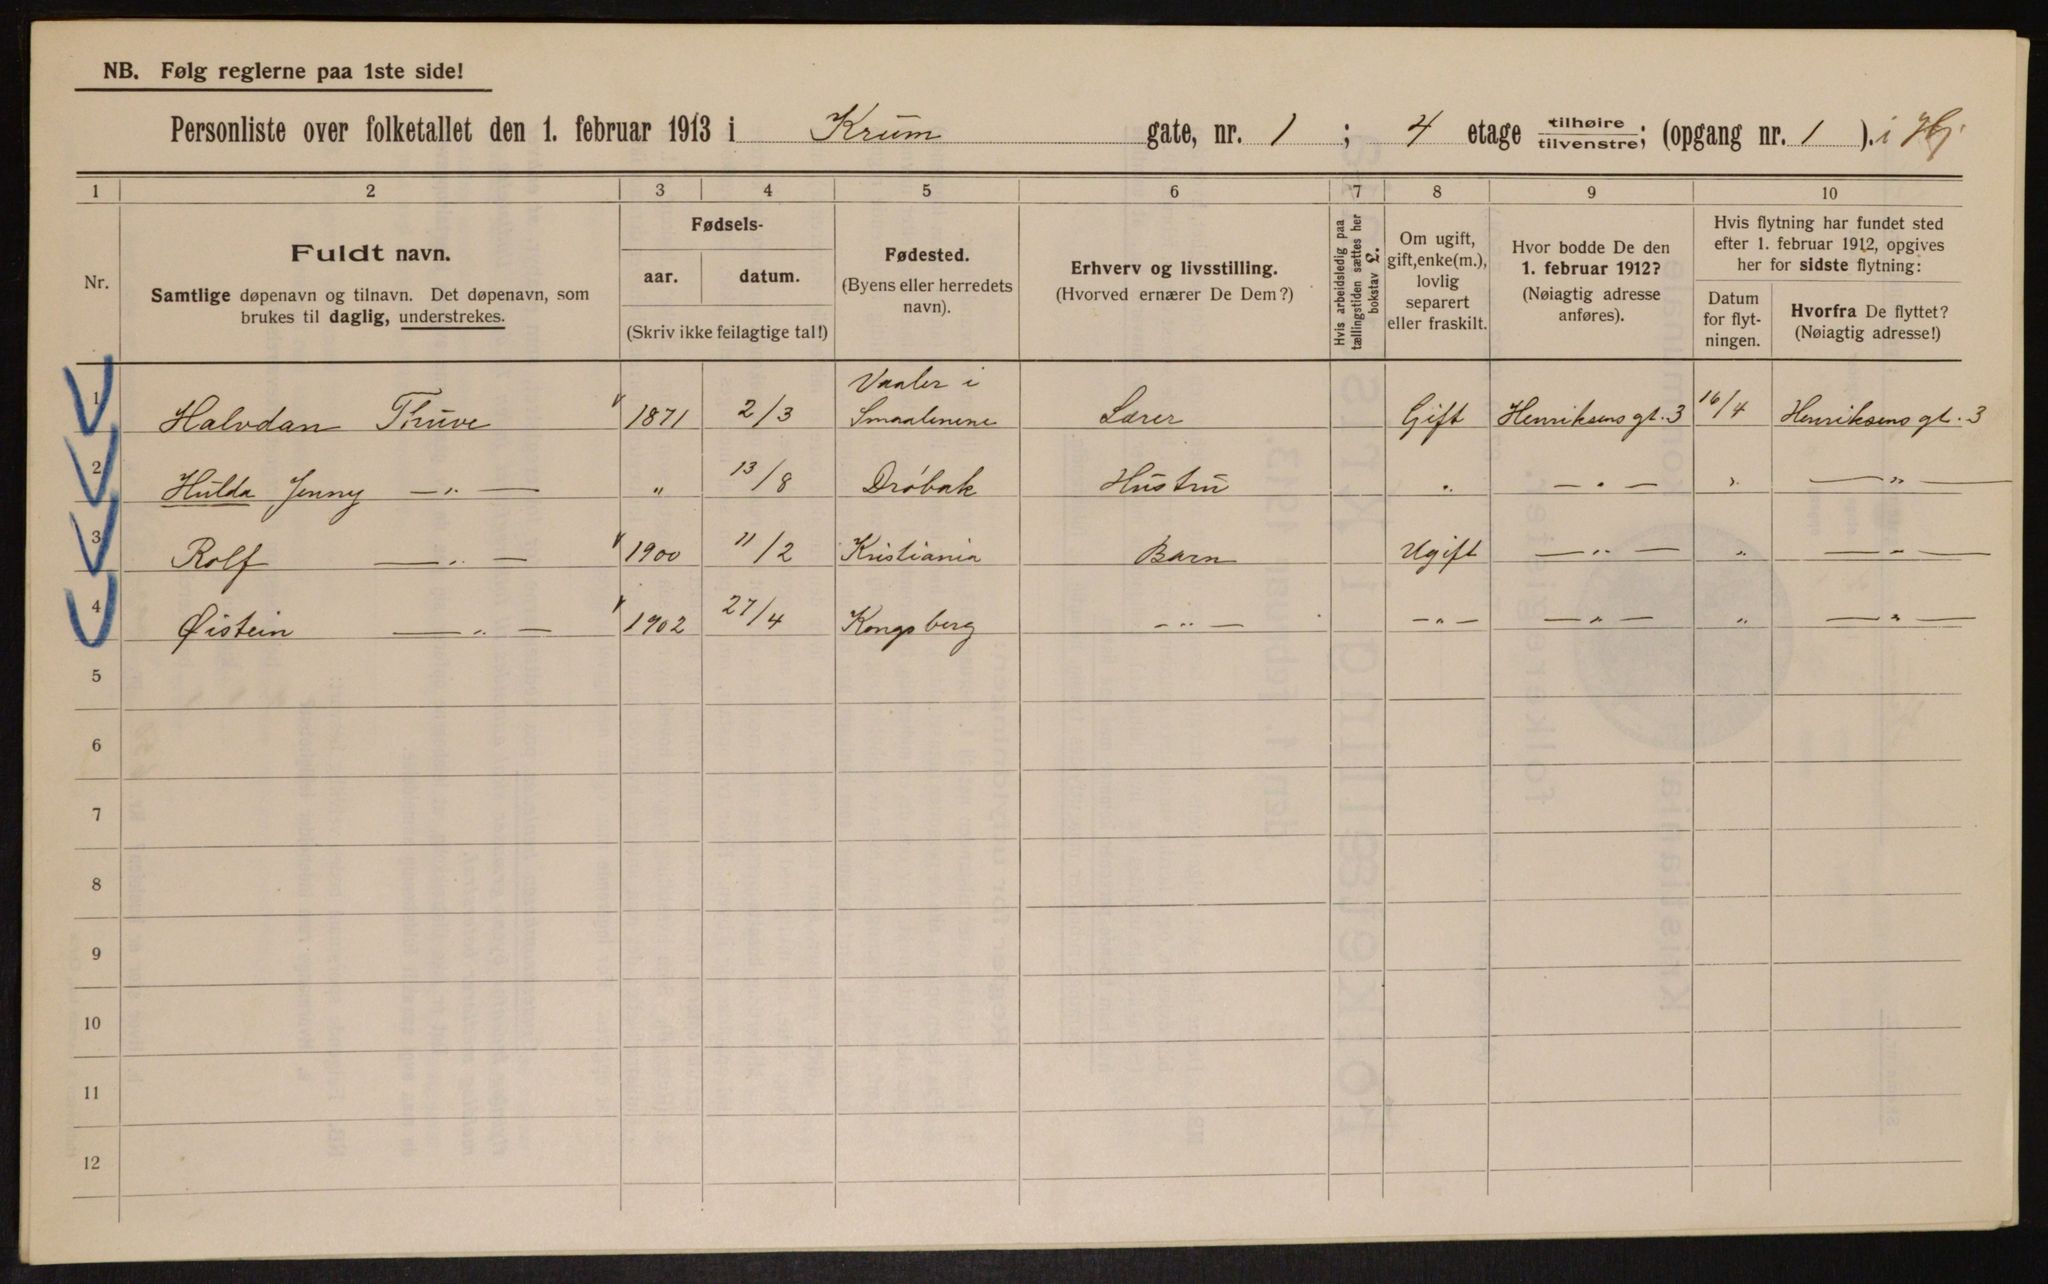 NB. Følg reglerne paa 1ste side!
Personliste over folketallet den 1. februar 1913 i Krum gate, nr. 1 ; 4 etage tilhøire/tilvenstre; (opgang nr. 1 ). i Hj.
1 2 3 4 5 6 7 8 9 10
Nr.
Fuldt navn.
Samtlige døpenavn og tilnavn. Det døpenavn, som
brukes til daglig, understrekes.
Fødsels-
aar. datum.
(Skriv ikke feilagtige tal!)
Fødested.
(Byens eller herredets
navn).
Erhverv og livsstilling.
(Hvorved ernærer De Dem?)
Hvis arbeidsledig paa
tællingstiden sættes her
bokstav L.
Om ugift,
gift, enke(m.),
lovlig
separert
eller fraskilt.
Hvor bodde De den
1. februar 1912?
(Nøiagtig adresse
anføres).
Hvis flytning har fundet sted
efter 1. februar 1912, opgives
her for sidste flytning:
Datum
for flyt-
ningen.
Hvorfra De flyttet?
(Nøiagtig adresse!)
1 Halvdan Thuve 1871 2/3 Vaaler i Smaalenene Lærer Gift Henriksens gt. 3 16/4 Henriksens gt. 3
2 Hulda Jenny — „ — „ 13/8 Drøbak Hustru „ — „ — „ — „ —
3 Rolf — „ — 1900 11/2 Kristiania Barn Ugift — „ — „ — „ —
4 Øistein — „ — 1902 27/4 Kongsberg — „ — — „ — — „ — „ — „ —
5
6
7
8
9
10
11
12